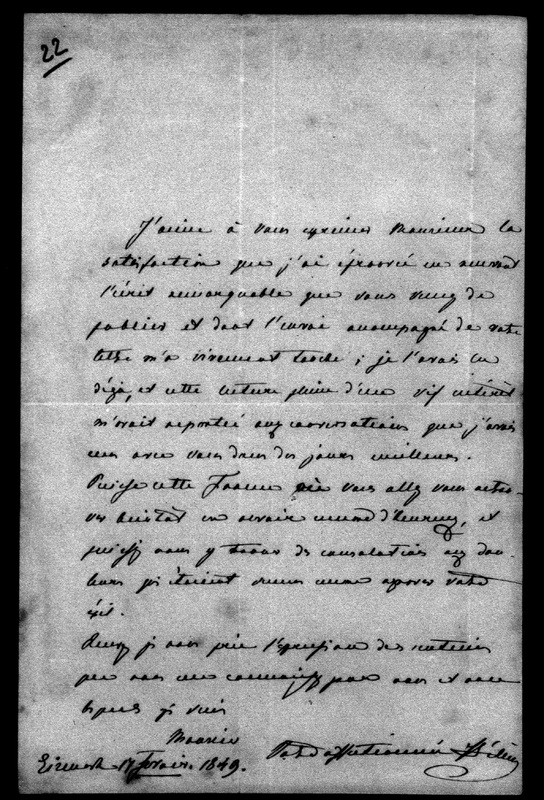 22
J'aime à vous exprimer Monsieur la
satisfaction que j'ai éprouvée en recevant
l'écrit remarquable que vous venez de
publier et dont l'envoi accompagné de votre
lettre m'a vivement touché ; je l'avais lu
déjà, et cette lecture pleine d'un vif intérêt
m'avait reportée aux conversations que j'avais
eues avec vous dans des jours meilleurs.
Puisse cette France où vous allez vous retrou-
ver bientôt en revoir encore d'heureux, et
puissiez vous y trouver des consolations aux dou-
leurs qui étaient venues encore aggraver votre
exil.
Recevez je vous prie l'expression des sentimens
que vous me connaissez pour vous et avec
lesquels je suis
Monsieur
Votre affectionnée Hélène
17 février 1849.